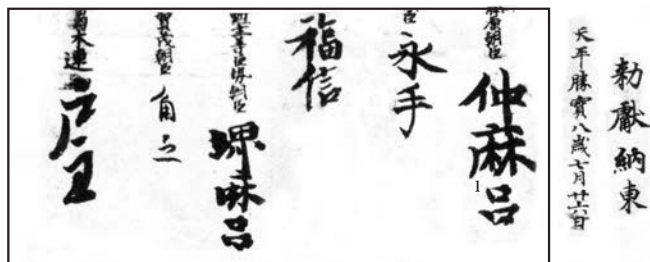 勅獻納東
天平勝寶八歳七月廿六日
藤原朝臣仲麻呂
1
臣永手
福信
巨勢朝臣堺麻呂
賀茂朝臣角足
葛木連戸主